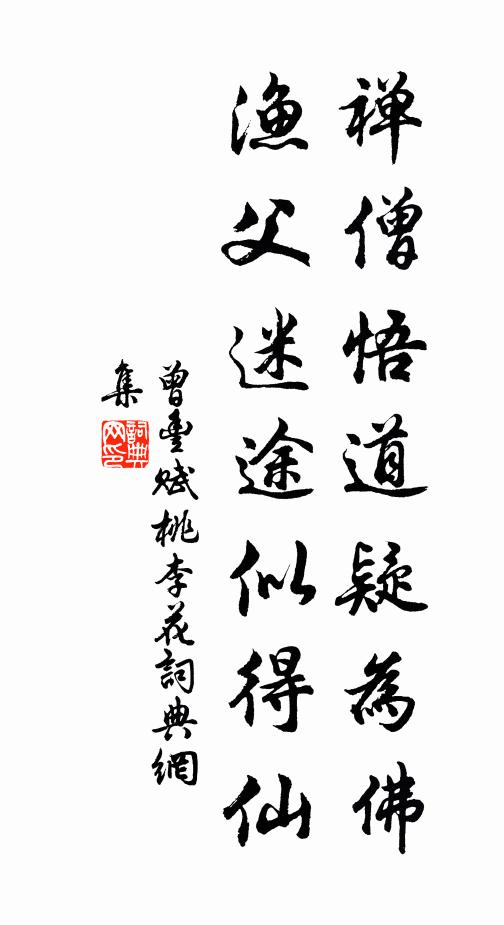 禅僧悟道疑為佛
漁父迷途似得仙
曾豐賦桃李花詞典網
集
詞典
网印